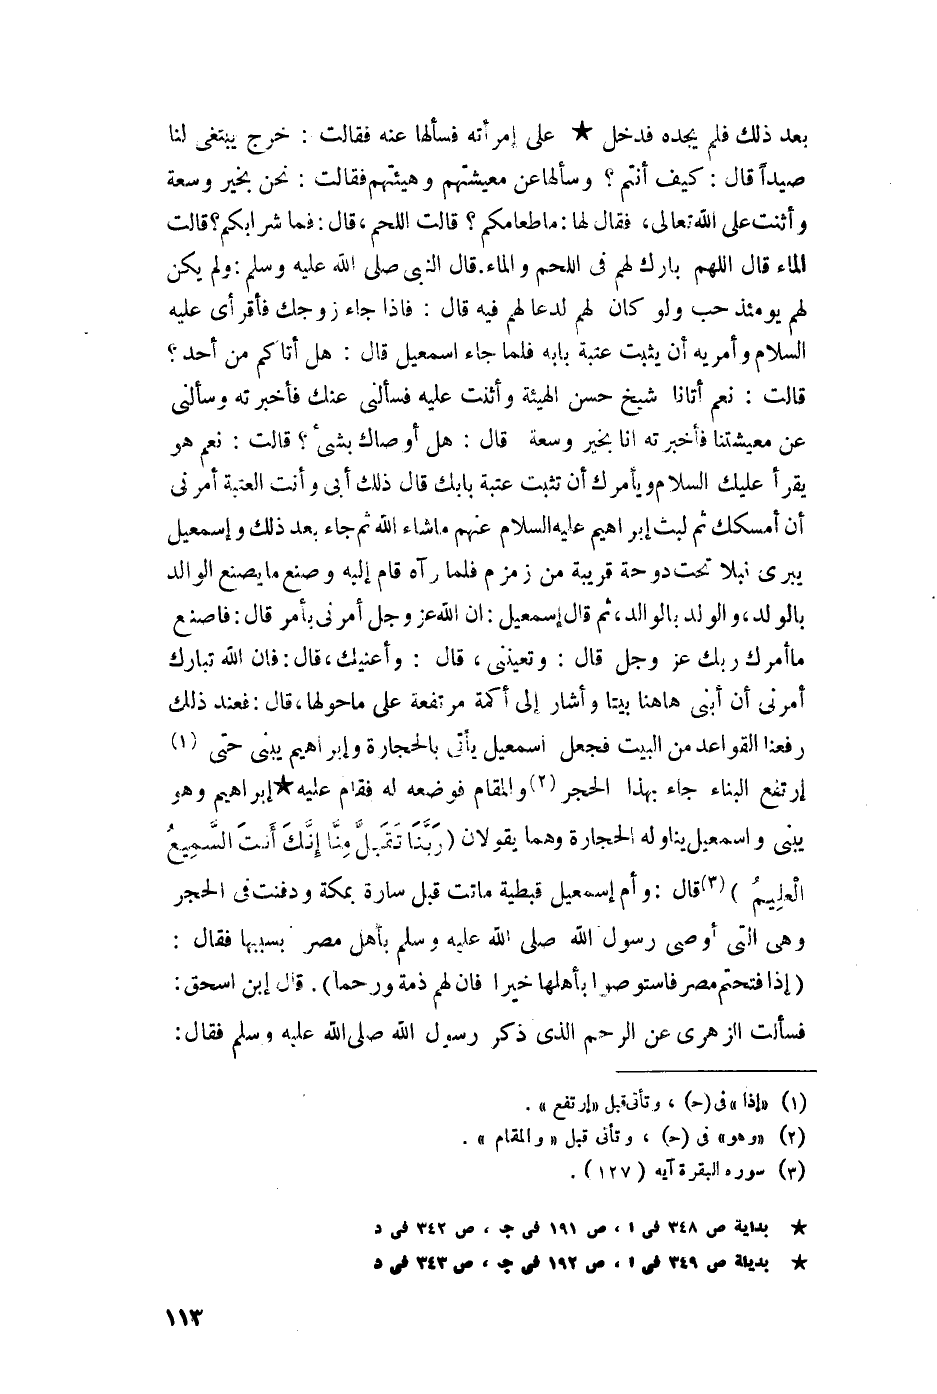 بعد ذلك فلم يجده فدخل ★ على إمرأته فسألها عنه فقالت : خرج يبتغى لنا
صيداً قال : كيف أنتم ؟ وسألها عن معيشتهم وهيئتهم فقالت : نحن بخير وسعة
وأثنت على الله تعالى، فقال لها : ما طعامكم ؟ قالت اللحم ، قال : فما شرابكم؟ قالت
الماء قال اللهم بارك لهم فى اللحم والماء. قال النبى صلى الله عليه وسلم : ولم يكن
لهم يومئذ حب ولو كان لهم لدعا لهم فيه قال : فاذا جاء زوجك فأقرأى عليه
السلام وأمريه أن يثبت عتبة بابه فلما جاء اسمعيل قال : هل أتاكم من أحد ؟
قالت : نعم أتانا شيخ حسن الهيئة وأثنت عليه فسألنى عنك فأخبرته وسألنى
عن معيشتنا فأخبرته انا بخير وسعة قال : هل أوصاك بشىء ؟ قالت : نعم هو
يقرأ عليك السلام ويأمرك أن تثبت عتبة بابك قال ذلك أبى وأنت العتبة أمرنى
أن أمسكك ثم لبث إبراهيم عليه السلام عنهم ماشاء الله ثم جاء بعد ذلك وإسمعيل
يبرى نبلا تحت دوحة قريبة من زمزم فلما رآه قام إليه وصنع ما يصنع الوالد
بالولد، والولد بالوالد، ثم قال إسمعيل : ان الله عز وجل أمرنى بأمر قال : فاصنع
ما أمرك ربك عز وجل قال : وتعيننى ، قال : وأعنيك ، قال : فان الله تبارك
أمرنى أن أبنى هاهنا بيتا وأشار إلى أكمة مرتفعة على ماحولها ، قال : فعند ذلك
رفعنا القواعد من البيت فجعل اسمعيل يأتى بالحجارة وإبراهيم يبنى حتى (١)
إرتفع البناء جاء بهذا الحجر (٢) والمقام فوضعه له فقام عليه ★ إبراهيم وهو
يبنى واسمعيل يناوله الحجارة وهما يقولان ( رَبَّنَا تَقَبَّلْ مِنَّا إِنَّكَ أَنتَ السَّمِيعُ
الْعَلِيمُ ) (٣) قال : وأم إسمعيل قبطية ماتت قبل سارة بمكة ودفنت فى الحجر
وهى التى أوصى رسول الله صلى الله عليه وسلم بأهل مصر بسببها فقال :
( إذا فتحتم مصر فاستوصوا بأهلها خيرا فان لهم ذمة ورحما ) . قال إبن اسحق :
فسألت الزهرى عن الرحم الذى ذكر رسول الله صلى الله عليه وسلم فقال :
(١) «إذا» فى (حـ) ، وتأتى قبل «إرتفع» .
(٢) «وهو» فى (حـ) ، وتأتى قبل « والمقام » .
(٣) سوره البقرة آيه ( ١٢٧ ) .
★ بداية ص ٣٤٨ فى ا ، ص ١٩١ فى جـ ، ص ٣٤٢ فى د
★ بديلة ص ٣٤٩ فى ا ، ص ١٩٢ فى جـ ، ص ٣٤٣ فى د
١١٣